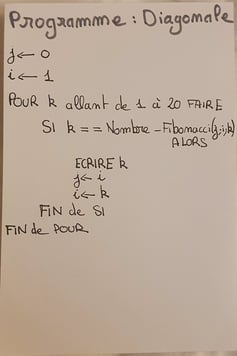 Programme : Diagonale
j ← 0
i ← 1
POUR k allant de 1 à 20 FAIRE
SI k == Nombre - Fibonacci(j,i,k)
ALORS
ECRIRE k
j ← i
i ← k
FIN de SI
FIN de POUR